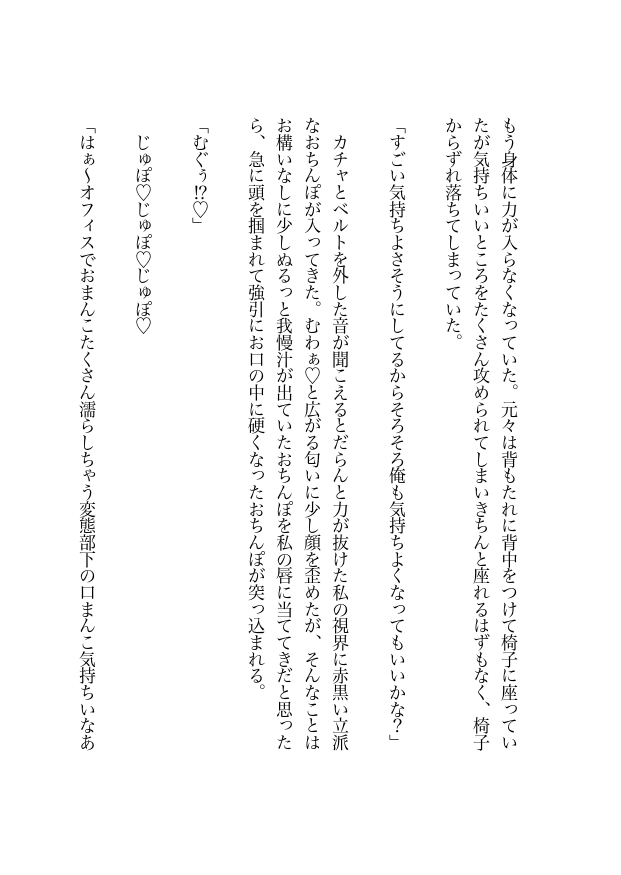 もう身体に力が入らなくなっていた。元々は背もたれに背中をつけて椅子に座ってい
たが気持ちいいところをたくさん攻められてしまいきちんと座れるはずもなく、椅子
からずれ落ちてしまっていた。
「すごい気持ちよさそうにしてるからそろそろ俺も気持ちよくなってもいいかな？」
カチャとベルトを外した音が聞こえるとだらんと力が抜けた私の視界に赤黒い立派
なおちんぽが入ってきた。むわぁ♡と広がる匂いに少し顔を歪めたが、そんなことは
お構いなしに少しぬるっと我慢汁が出ていたおちんぽを私の唇に当ててきだと思った
ら、急に頭を掴まれて強引にお口の中に硬くなったおちんぽが突っ込まれる。
「むぐぅ⁉♡」
じゅぽ♡じゅぽ♡じゅぽ♡
「はぁ〜オフィスでおまんこたくさん濡らしちゃう変態部下の口まんこ気持ちいなあ